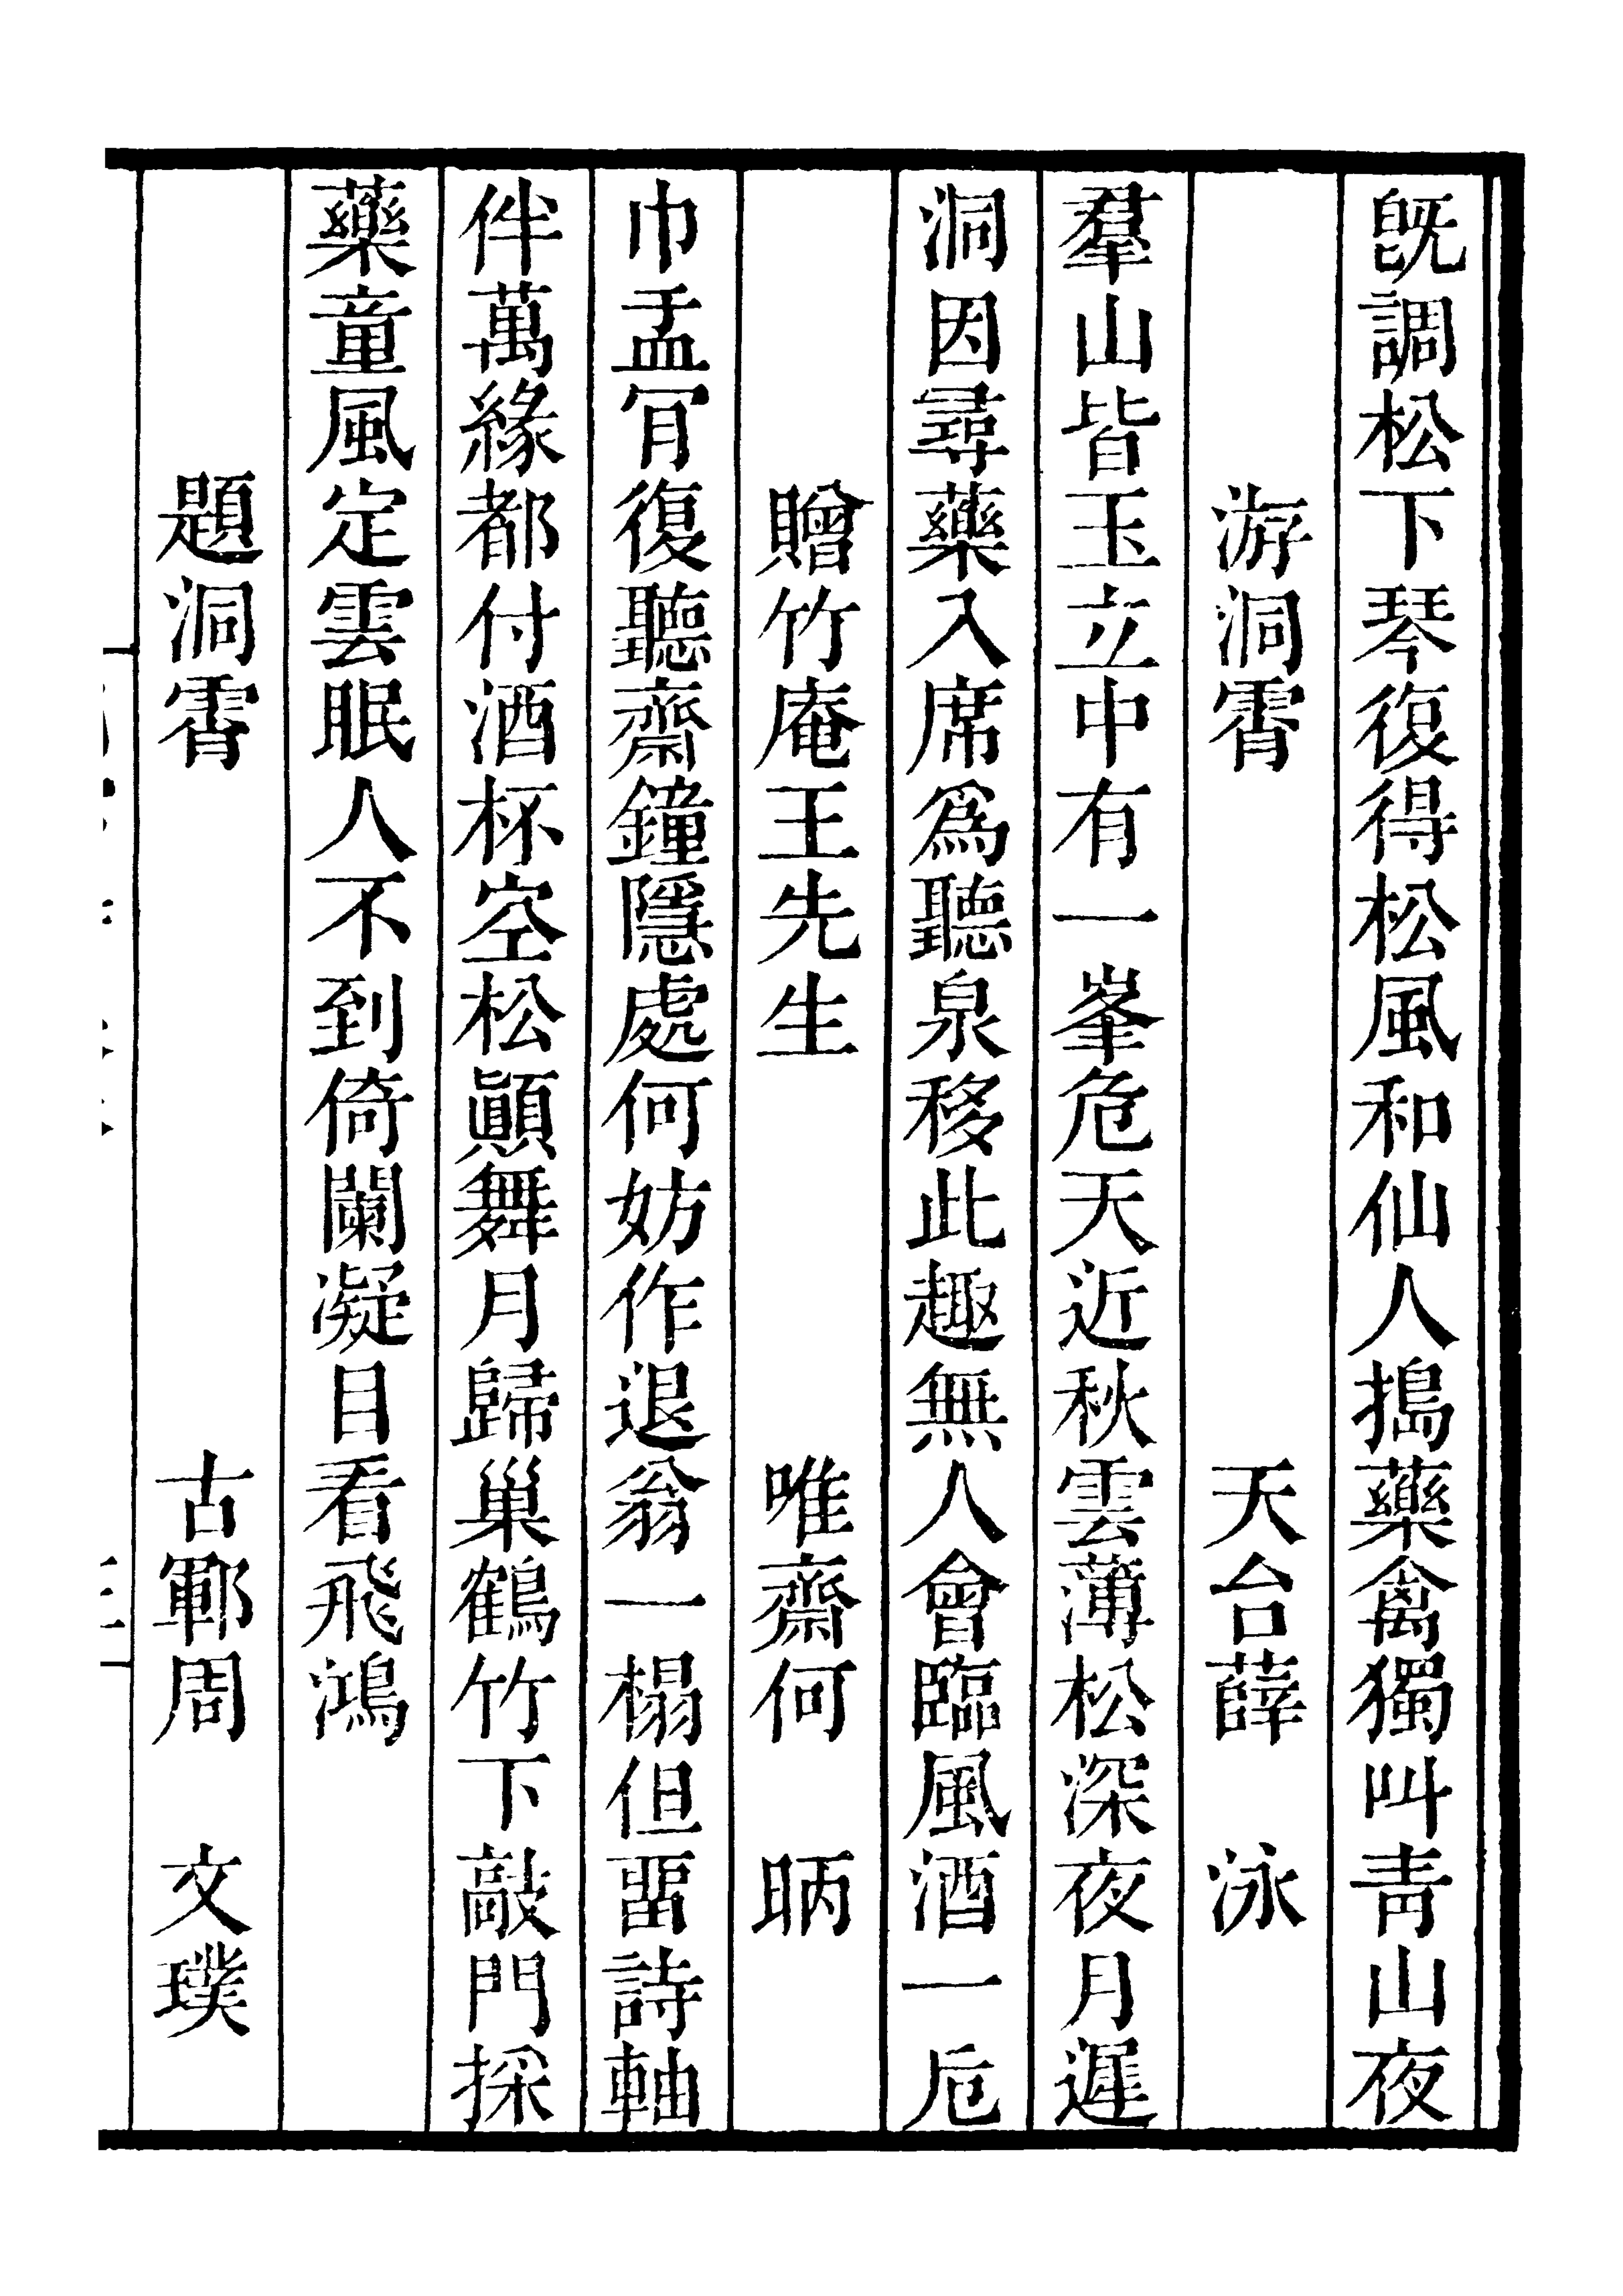 旣調松下琴復得松風和仙人搗藥禽獨叫靑山夜
游洞霄　天台薛　泳
羣山皆玉立中有一峯危天近秋雲薄松深夜月遲
洞因尋藥入席爲聽泉移此趣無人會臨風酒一卮
贈竹庵王先生　唯齋何　昞
巾盂肎復聽齋鐘隱處何妨作退翁一榻但畱詩軸
伴萬緣都付酒杯空松顚舞月歸巢鶴竹下敲門採
藥童風定雲眠人不到倚闌凝目看飛鴻
題洞霄　古鄆周　文璞